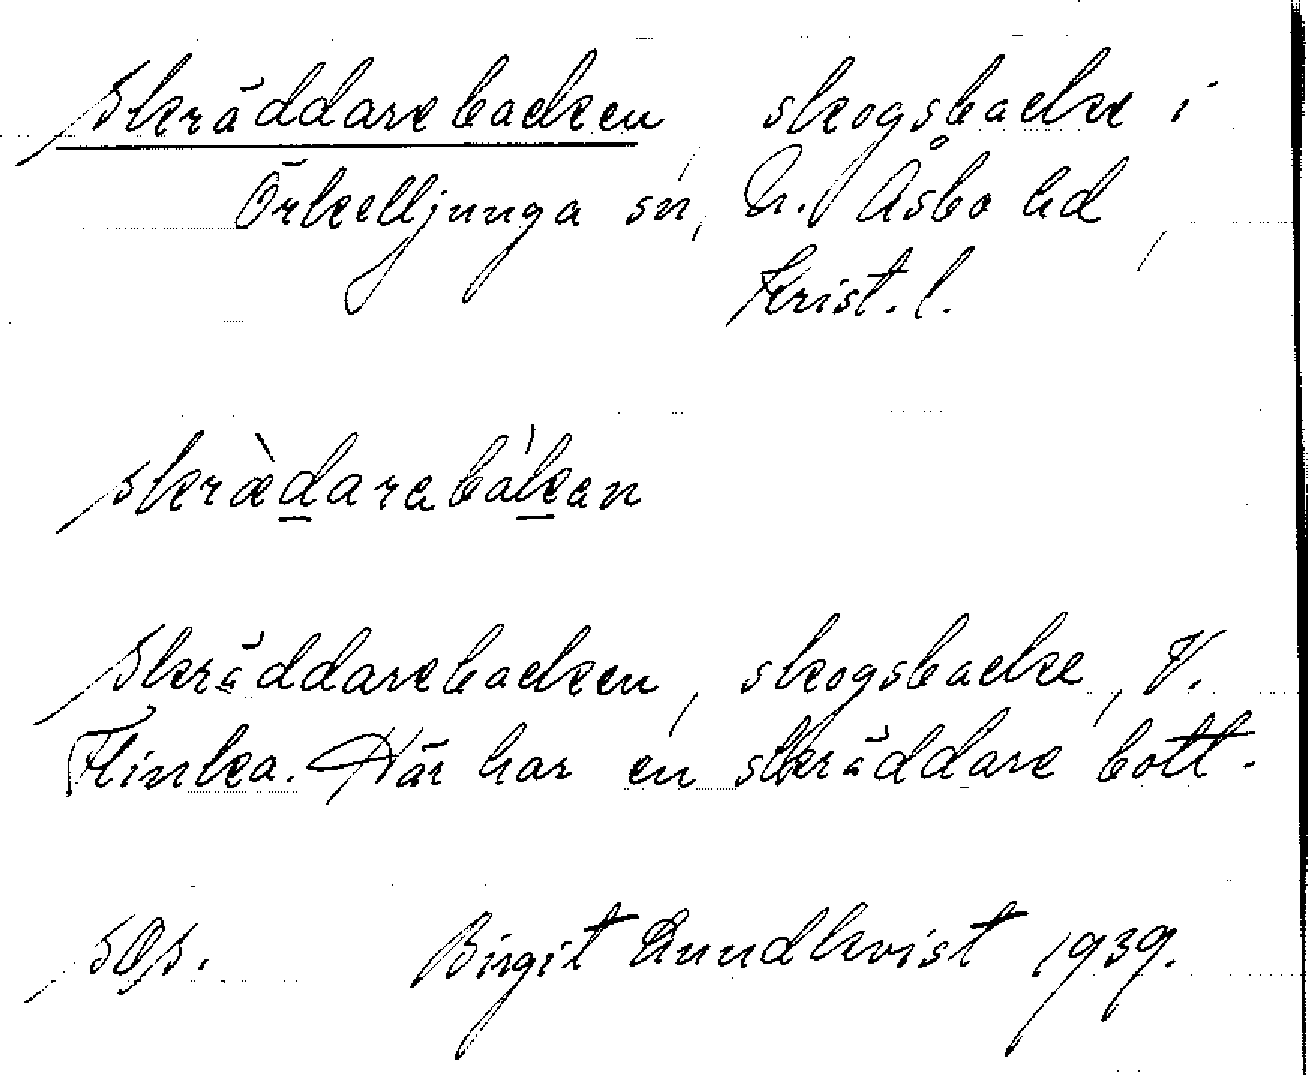 Skräddarebacken skogsbacke i
Örkelljunga sn, N. Åsbo hd,
Krist. l.
skrædarabákan
Skräddarebacken, skogsbacke, V.
Flinka. Här har en skräddare bott.
Birgit Lundkvist 1939.